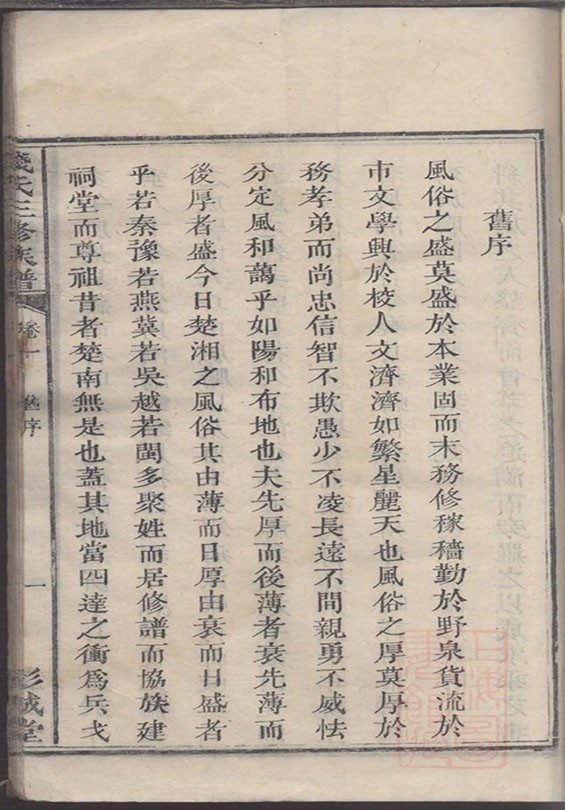 舊序
風俗之盛莫盛於本業固而末務修稼穡勤於野泉貨流於
市文學興於校人文濟濟如繁星麗天也風俗之厚莫厚於
務孝弟而尚忠信智不欺愚少不凌長遠不間親勇不威怯
分定風和藹乎如陽和布地也夫先厚而後薄者衰先薄而
後厚者盛今日楚湘之風俗其由薄而日厚由衰而日盛者
乎若秦豫若燕冀若吳越若閩多聚姓而居修譜而協族建
祠堂而尊祖昔者楚南無是也蓋其地當四達之衝為兵戈
錢氏三修族譜 卷一 舊序 一 彭城堂